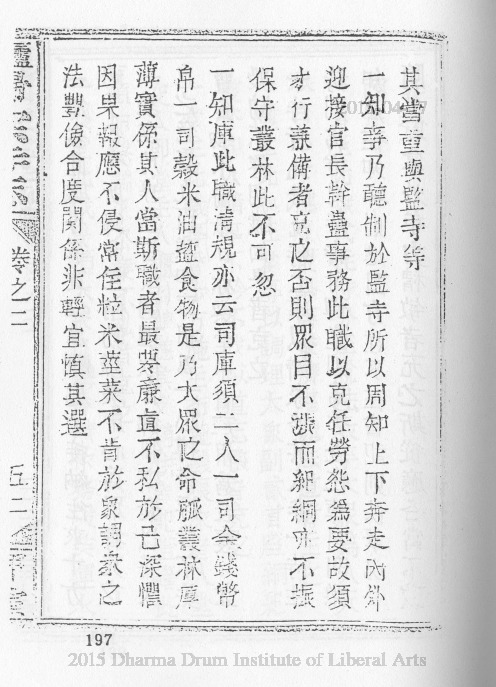 其當重與監寺等
一知事乃聽制於監寺所以周知上下奔走內外
迎接官長幹蠱事務此職以克任勞怨為要故須
才行兼備者充之否則眾目不濊而細綱亦不振
保守叢林此不可忽
一知庫此職清規亦云司庫須二人一司金錢幣
帛一司穀米油鹽食物是乃大眾之命脈叢林厚
薄實係其人當斯職者最要廉直不私於己深懼
因果報應不侵常住粒米莖菜不肯於眾調眾之
法豐儉合度關係非輕宜慎其選
卷之二
五二
197
2015 Dharma Drum Institute of Liberal Arts